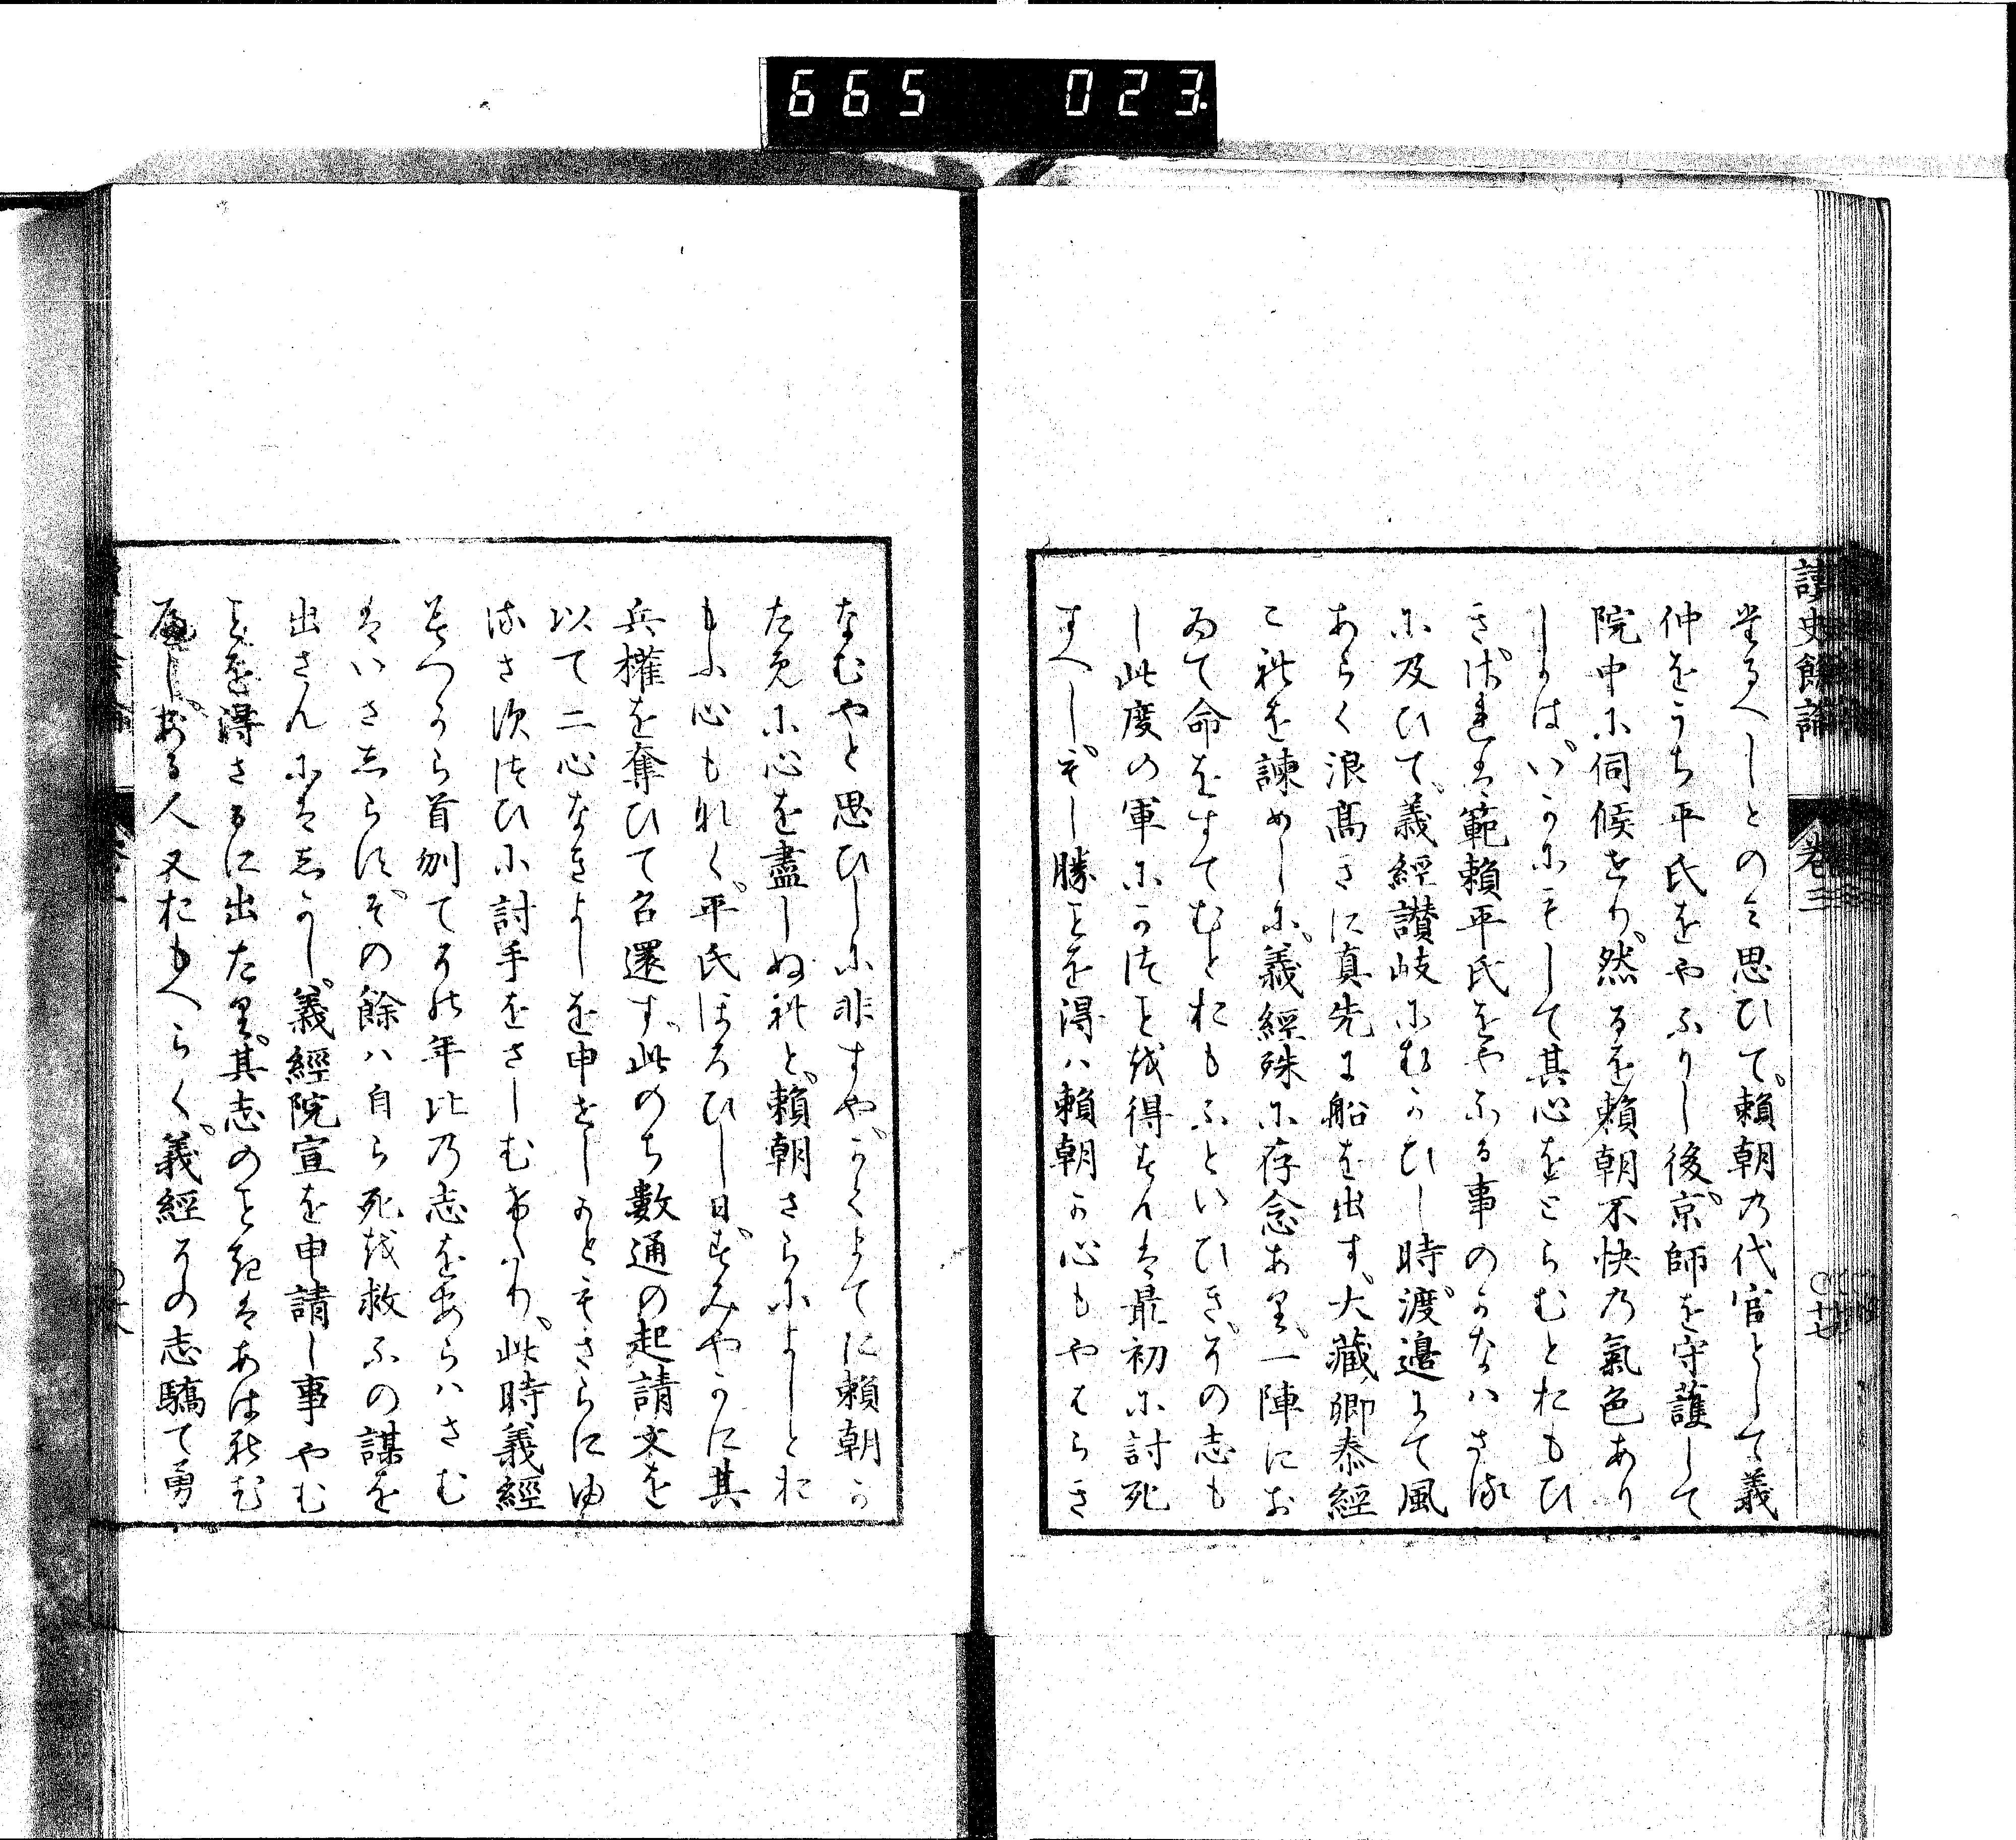 665 023
讀史餘論 卷三 ○廿七
堂るへしとのミ思ひて。頼朝乃代官として義
仲をうち平氏をやふりし後。京師を守護して
院中に伺候せり。然るを頼朝不快乃氣色あり
しかは。いかにもして其心をとらむとおもひ
き。されは。範頼平氏をやふる事のかなハさる
に及ひて。義經讃岐にむかひし時。渡邉にて風
あらく浪髙きに真先に船を出す。大藏卿泰經
これを諫めしに。義經殊に存念あり。一陣にお
ゐて命をすてむとおもふといひき。その志も
し此度の軍にかつことを得すんは最初に討死
すへし。もし勝ことを得ハ頼朝か心もやはらき
なむやと思ひしに非すや。かくまてに頼朝か
ために心を盡しぬれと。頼朝さらによしとお
もふ心もなく。平氏ほろひし日。すみやかに其
兵權を奪ひて召還す。此のち數通の起請文を
以て二心なきよしを申せしかともさらにゆ
るさすつひに討手をさしむけたり。此時義經
みつから首刎てその年比乃志をあらハさむ
はいさしらす。その餘ハ自ら死を救ふの謀を
出さんにはしかし。義經院宣を申請し事やむ
ことを得さるに出たり。其志のこときはあはれむ
へし。ある人又おもへらく。義經その志驕て勇